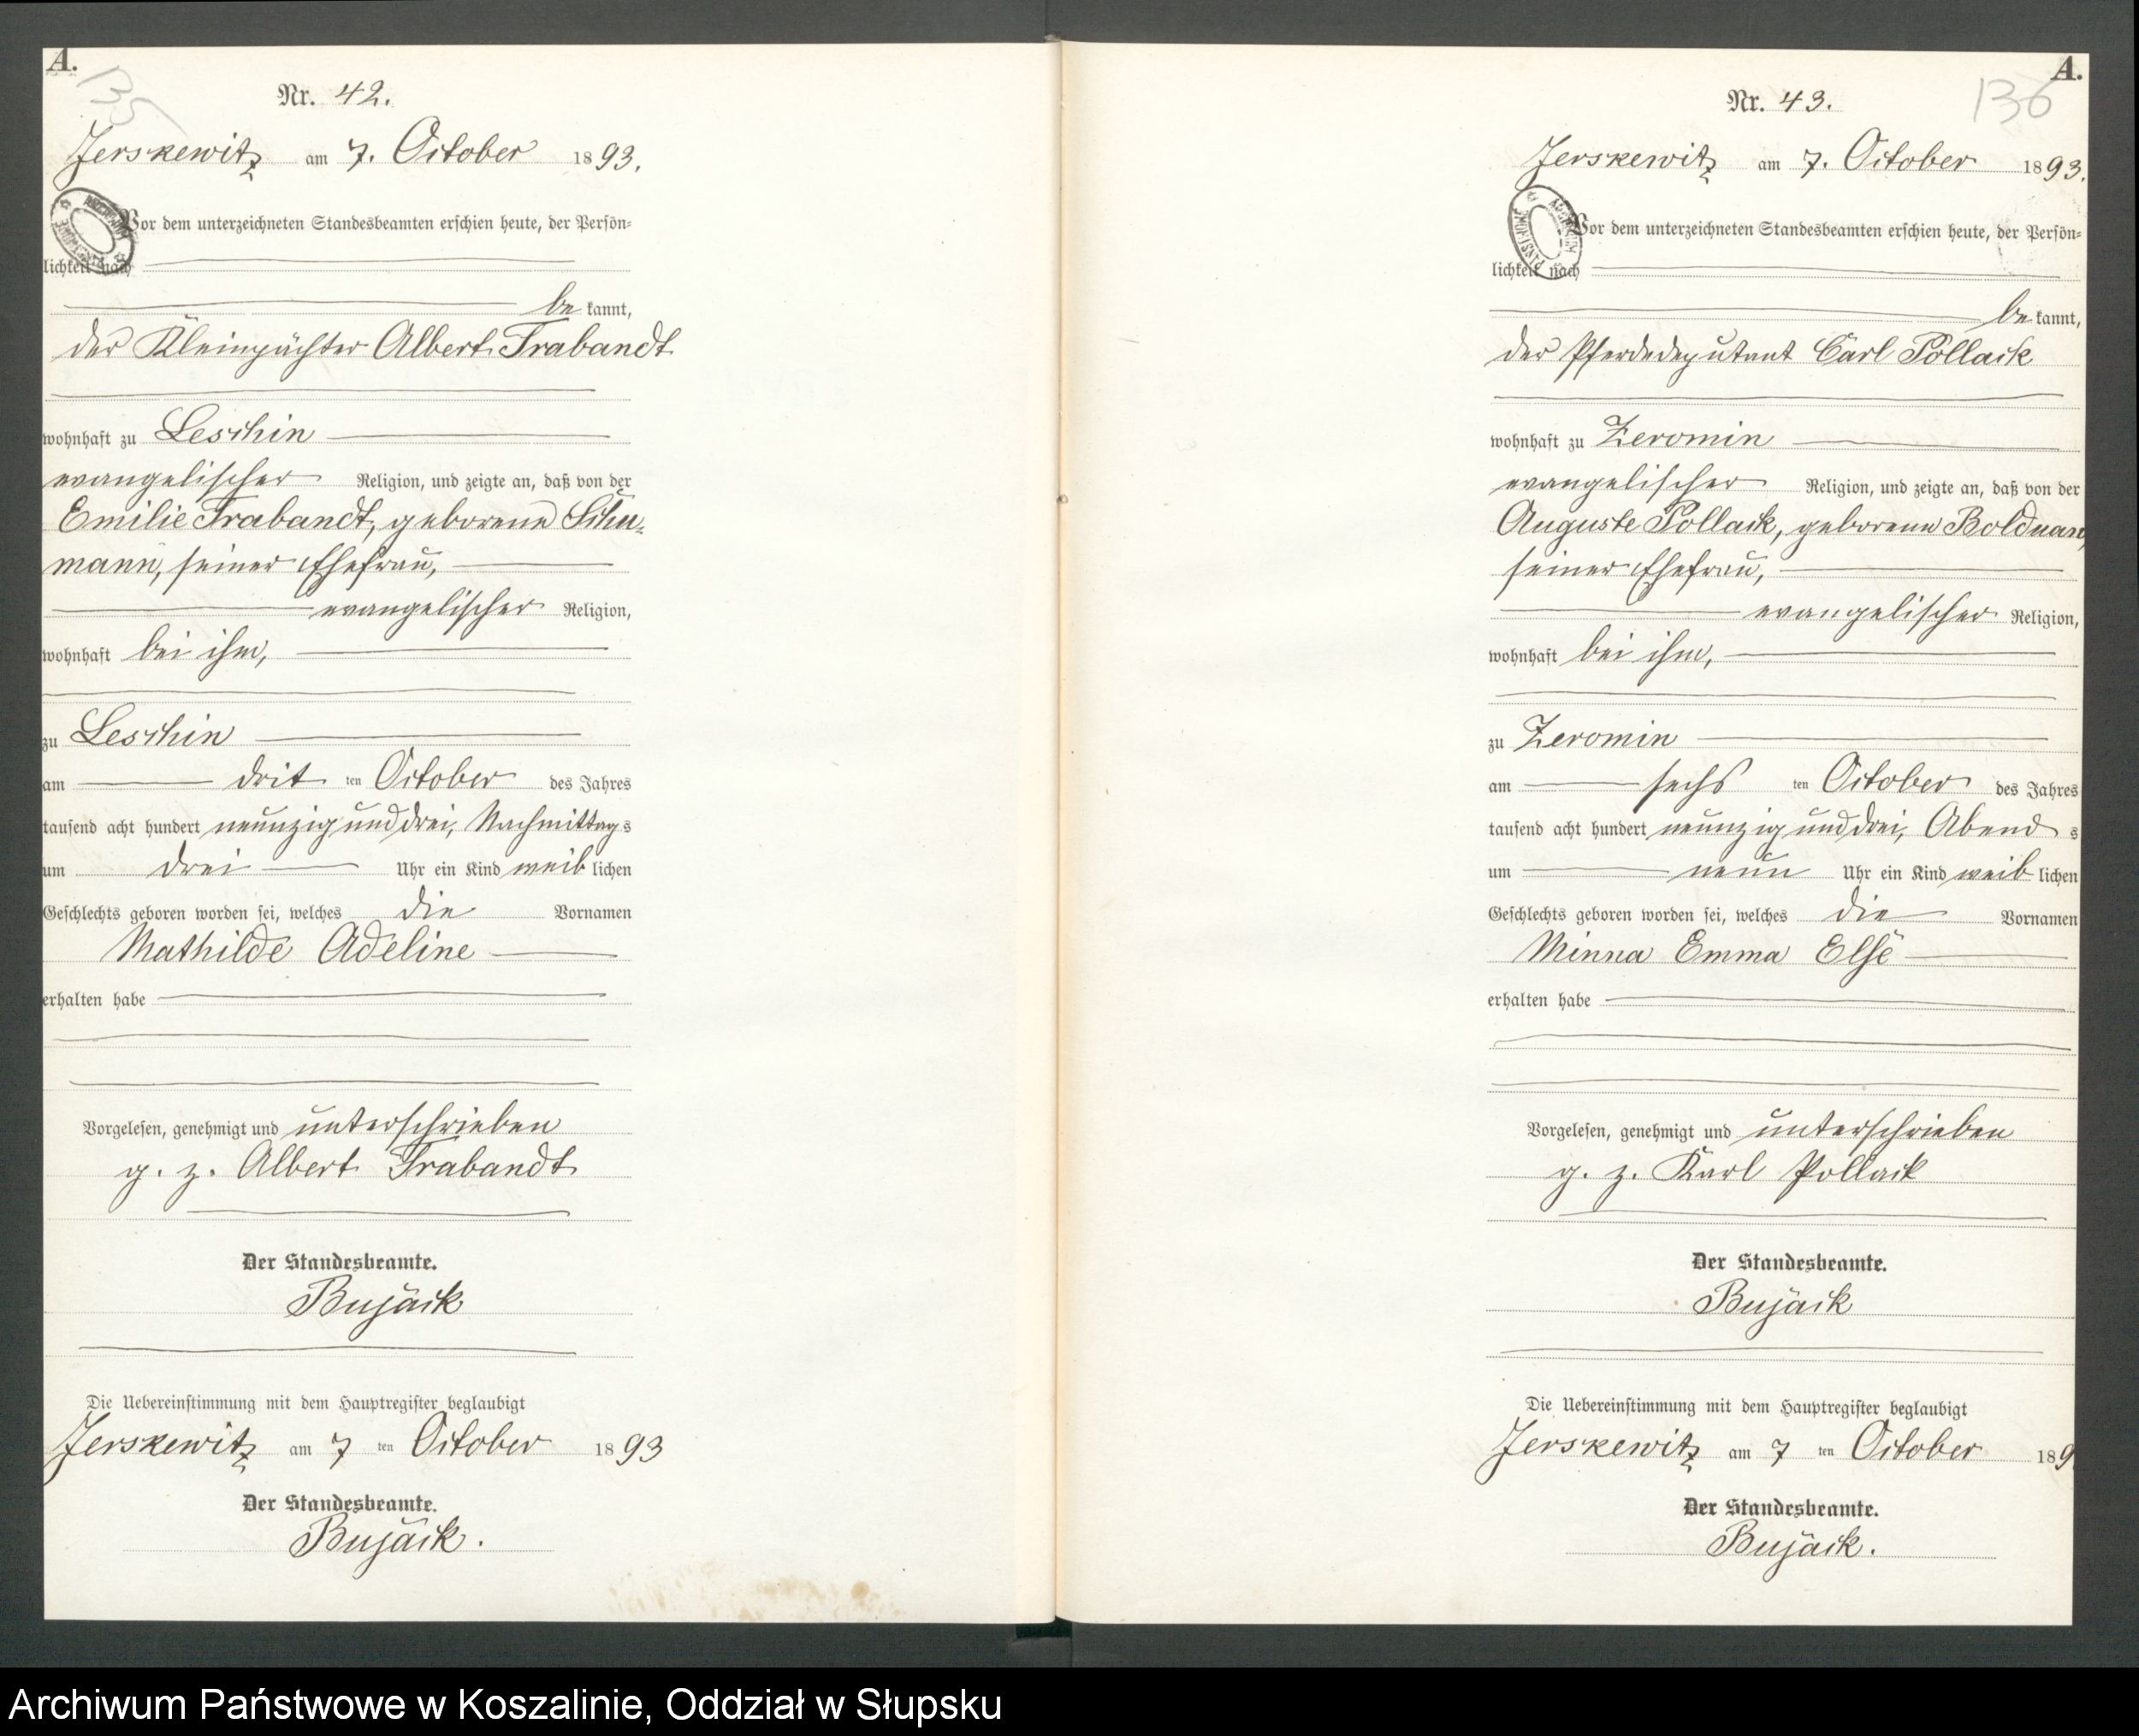 A.
135
Nr. 42.
Jerskewitz am 7. October 1893.
Vor dem unterzeichneten Standesbeamten erschien heute, der Persön=
lichkeit nach
be kannt,
der Kleinpächter Albert Trabandt
wohnhaft zu Leschin
evangelischer Religion, und zeigte an, daß von der
Emilie Trabandt, geborene Schu-
mann, seiner Ehefrau,
evangelischer Religion,
wohnhaft bei ihm,
zu Leschin
am dritten October des Jahres
tausend acht hundert neunzig und drei, Nachmittags
um drei Uhr ein Kind weiblichen
Geschlechts geboren worden sei, welches die Vornamen
Mathilde Adeline
erhalten habe
Vorgelesen, genehmigt und unterschrieben
g. z. Albert Trabandt
Der Standesbeamte.
Bujack
Die Uebereinstimmung mit dem Hauptregister beglaubigt
Jerskewitz am 7 ten October 1893
Der Standesbeamte.
Bujack.
A.
136
Nr. 43.
Jerskewitz am 7. October 1893.
Vor dem unterzeichneten Standesbeamten erschien heute, der Persön=
lichkeit nach
be kannt,
der Pferdedeputant Carl Pollack
wohnhaft zu Zeromin
evangelischer Religion, und zeigte an, daß von der
Auguste Pollack, geborene Bolduan,
seiner Ehefrau,
evangelischer Religion,
wohnhaft bei ihm,
zu Zeromin
am sechs ten October des Jahres
tausend acht hundert neunzig und drei, Abends
um neun Uhr ein Kind weiblichen
Geschlechts geboren worden sei, welches die Vornamen
Minna Emma Else
erhalten habe
Vorgelesen, genehmigt und unterschrieben
g. z. Karl Pollack
Der Standesbeamte.
Bujack
Die Uebereinstimmung mit dem Hauptregister beglaubigt
Jerskewitz am 7 ten October 189
Der Standesbeamte.
Bujack.
Archiwum Państwowe w Koszalinie, Oddział w Słupsku